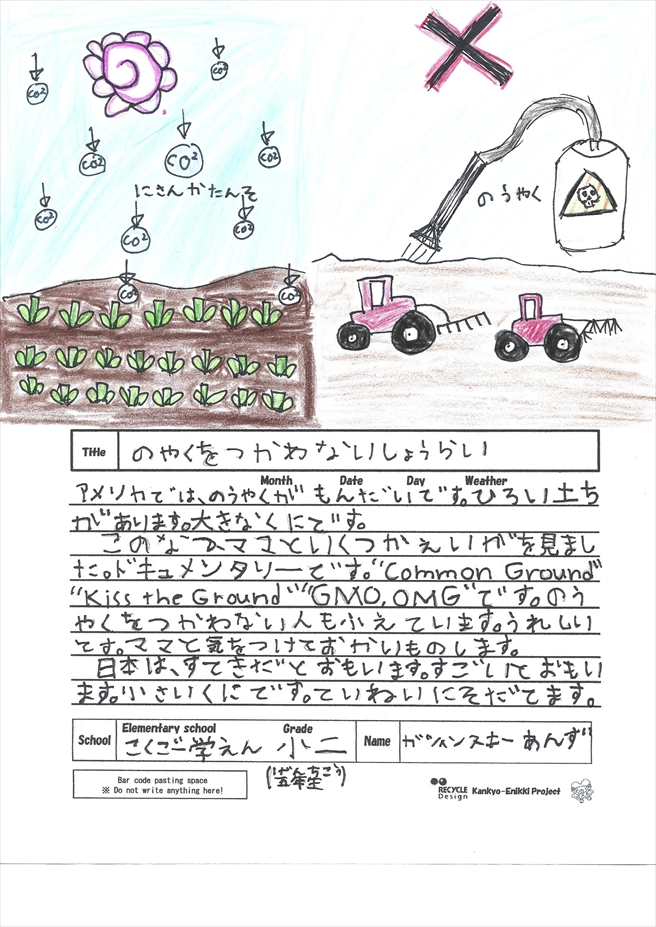 CO2
CO2
CO2
CO2
CO2
にさんかたんそ
CO2
CO2
CO2
CO2
CO2
のうやく
Title
のやくをつかわないしょうらい
Month Date Day Weather
アメリカでは、のうやくがもんだいです。ひろい土ち
があります。大きなくにです。
このなつママといくつかえいがを見まし
た。ドキュメンタリーです。"Common Ground"
"Kiss the Ground" "GMO, OMG"です。のう
やくをつかわない人もふえています。うれしい
です。ママと気をつけておかいものします。
日本は、すてきだとおもいます。すごいとおもい
ます。小さいくにです。ていねいにそだてます。
School
Elementary school
Grade
こくごー学えん 小二
(げんちこう
五年生)
Name
あんず
Bar code pasting space
※ Do not write anything here!
RECYCLE
Design
Kankyo-Enikki Project